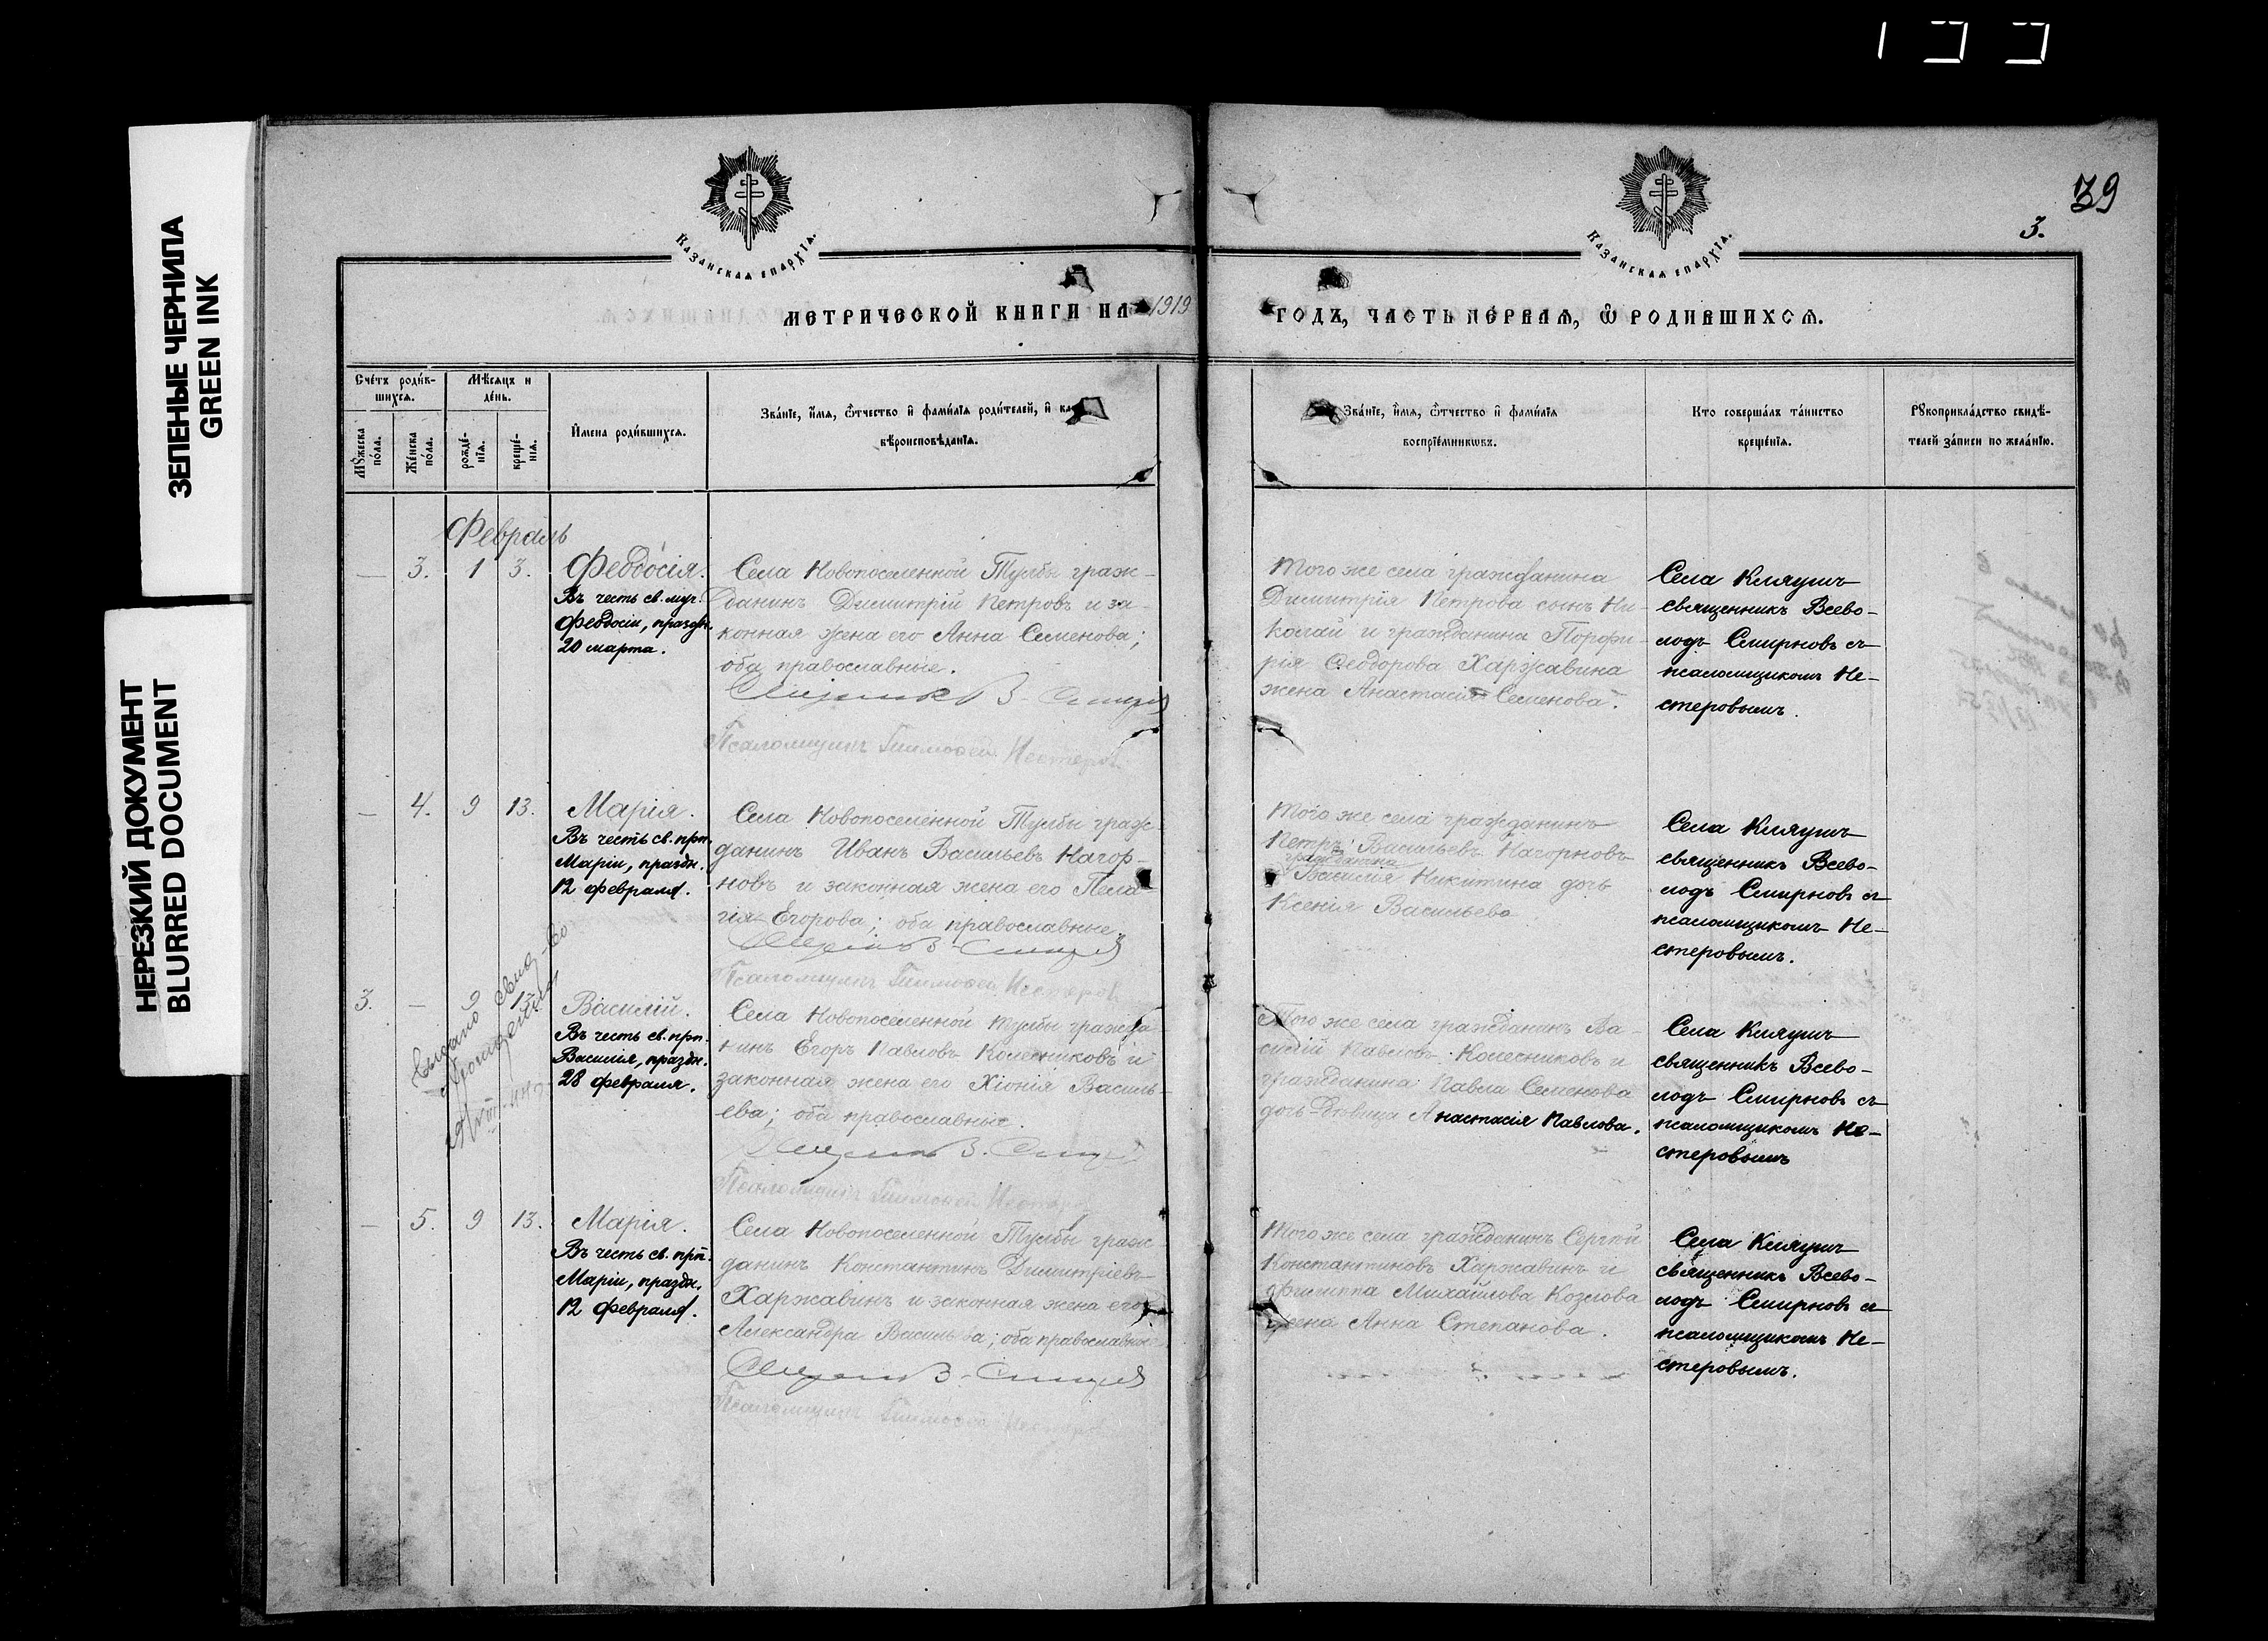 ЗЕЛЕНЫЕ ЧЕРНИЛА
GREEN INK
НЕРЕЗКИЙ ДОКУМЕНТ
BLURRED DOCUMENT
39
3.
Казанская епархїѧ.
Казанская епархїѧ.
МЕТРИЧЕСКОЙ КНИГИ НА 1919
ГОДЪ, ЧАСТЬ ПЕРВАѦ, Ѿ РОДИВШИХСѦ.
Счéтъ роди́в-
шихсѧ.
Мѣ́сѧцъ и
де́нь.
Мꙋ́жеска
по́ла.
Же́нска
по́ла.
рожде́-
нїѧ.
креще́-
нїѧ.
И҆мена роди́вшихсѧ.
Зва́нїе, и҆́мѧ, ѻ҆́тчество и҆ фами́лїѧ роди́телей, и҆ ка
вѣроисповѣ́данїѧ.
Зва́нїе, и҆́мѧ, ѻ҆́тчество и҆ фами́лїѧ
воспрїе́мникѡвъ.
Кто соверша́лъ та́инство
креще́нїѧ.
Рꙋкоприкла́дство свидѣ́-
телей за́писи по жела́нїю.
Февраль
— 3. 1 3. Феодосія.
Въ честь св. муч.
Феодосіи, праздн.
20 марта.
Села Новопоселенной Тулбы граж-
данинъ Димитрій Петровъ и за-
конная жена его Анна Семенова;
оба православные.
Псаломщикъ Тимофей Нестеров
Того же села гражданина
Димитрія Петрова сынъ Ни-
колай и гражданина Порфи-
рія Феодорова Харжавина
жена Анастасія Семенова.
Села Кляушъ
священникъ Всево-
лодъ Смирновъ съ
псаломщикомъ Не-
стеровымъ.
— 4. 9 13. Марія.
Въ честь св. прп.
Маріи, праздн.
12 февраля.
Села Новопоселенной Тулбы граж-
данинъ Иванъ Васильевъ Нагор-
новъ и законная жена его Пела-
гія Егорова; оба православные.
Псаломщикъ Тимофей Нестеров
Того же села гражданинъ
Петръ Васильевъ Нагорновъ
гражданина
Василія Никитина дочь
Ксенія Васильева
Села Кляушъ
священникъ Всево-
лодъ Смирновъ съ
псаломщикомъ Не-
стеровымъ.
3. — 9 13 Василій.
Въ честь св. прп.
Василія, праздн.
28 февраля.
Выдано
Села Новопоселенной Тулбы гражда-
нинъ Егоръ Павловъ Колесниковъ и
законная жена его Хіонія Василь-
ева; оба православные.
Псаломщикъ Тимофей
Того же села гражданинъ Ва-
силій Павловъ Колесниковъ и
гражданина Павла Семенова
дочь-дѣвица Анастасія Павлова.
Села Кляушъ
священникъ Всево-
лодъ Смирновъ съ
псаломщикомъ Не-
стеровымъ
— 5. 9 13. Марія.
Въ честь св. прп.
Маріи, праздн.
12 февраля.
Села Новопоселенной Тулбы граж
данинъ Константинъ Димитріевъ
Харжавинъ и законная жена его
Александра Васильева; оба православные
Псаломщикъ Тимофей
Того же села гражданинъ Сергѣй
Константиновъ Харжавинъ и
Филиппа Михайлова Козлова
жена Анна Степанова.
Села Кляушъ
священникъ Всево-
лодъ Смирновъ съ
псаломщикомъ Не-
стеровымъ.